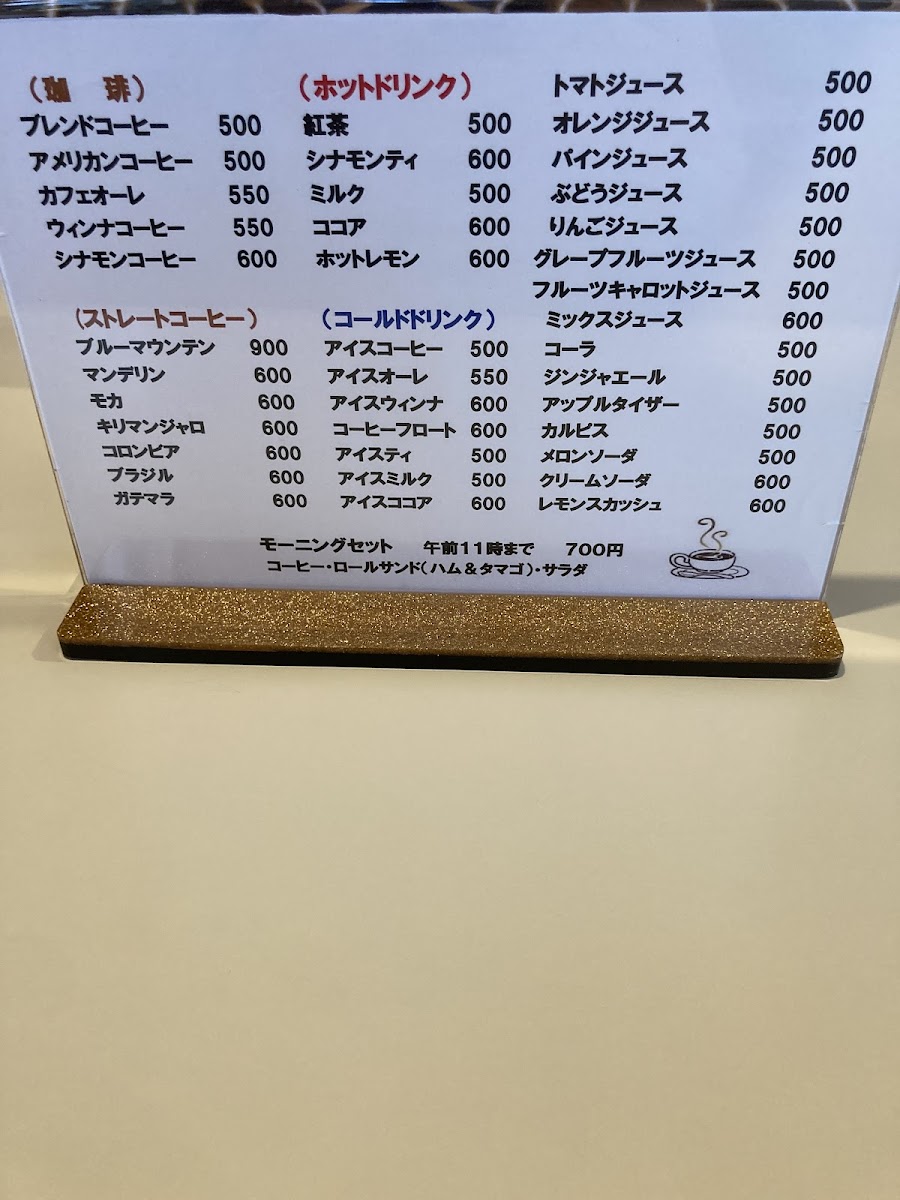 (珈 琲)
ブレンドコーヒー 500
アメリカンコーヒー 500
カフェオーレ 550
ウィンナコーヒー 550
シナモンコーヒー 600
(ストレートコーヒー)
ブルーマウンテン 900
マンデリン 600
モカ 600
キリマンジャロ 600
コロンビア 600
ブラジル 600
ガテマラ 600
(ホットドリンク)
紅茶 500
シナモンティ 600
ミルク 500
ココア 600
ホットレモン 600
(コールドドリンク)
アイスコーヒー 500
アイスオーレ 550
アイスウィンナ 600
コーヒーフロート 600
アイスティ 500
アイスミルク 500
アイスココア 600
トマトジュース 500
オレンジジュース 500
パインジュース 500
ぶどうジュース 500
りんごジュース 500
グレープフルーツジュース 500
フルーツキャロットジュース 500
ミックスジュース 600
コーラ 500
ジンジャエール 500
アップルタイザー 500
カルピス 500
メロンソーダ 500
クリームソーダ 600
レモンスカッシュ 600
モーニングセット 午前11時まで 700円
コーヒー・ロールサンド(ハム&タマゴ)・サラダ